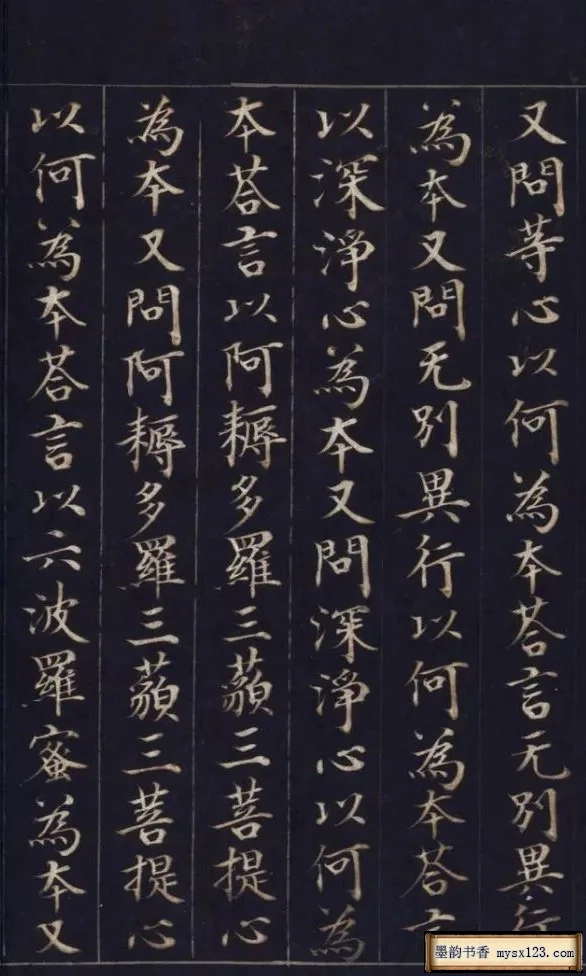 又問等心以何為本荅言无別異行
為本又問无別異行以何為本荅言
以深淨心為本又問深淨心以何為
本荅言以阿耨多羅三藐三菩提心
為本又問阿耨多羅三藐三菩提心
以何為本荅言以六波羅蜜為本又
墨韵书香 mysx123.com